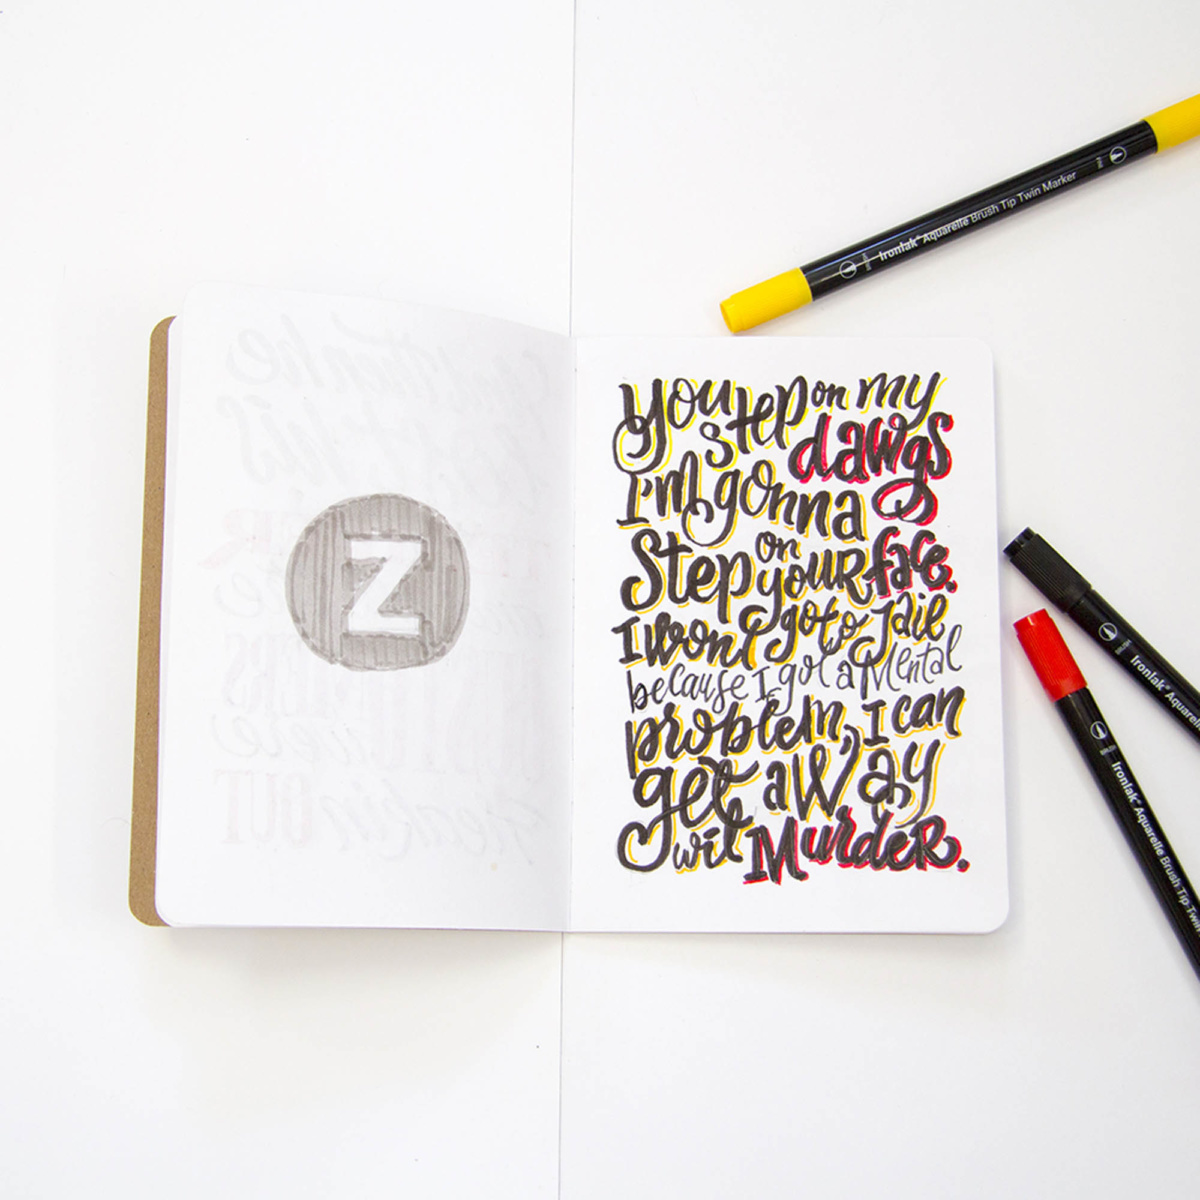 Z
You step on my
dawgs
I'm gonna
Step on your face.
I won't go to Jail
because I got a Mental
problem, I can
get away
wit Murder.
BRUSH Ironlak® Aquarelle Brush Tip Twin Marker
BRUSH Ironlak® Aquarelle
BRUSH Ironlak® Aquarelle Brush Tip Twin